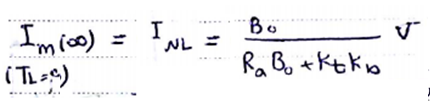 I_m(∞) = I_NL = B_0 / (R_a B_0 + k_t k_b) V
(T_L=0)